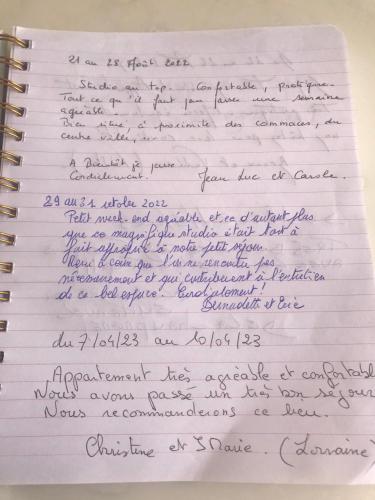 21 au 28 Août 2022
Studio au top. Confortable, pratique.
Tout ce qu'il faut pour passer une semaine
agréable.
Bien situé, à proximité des commerces, du
centre ville,
A Bientôt je pense
Cordialement.
Jean Luc et Carole.
29 au 31 octobre 2022
Petit week-end agréable et ce d'autant plus
que ce magnifique studio était tout à
fait approprié à notre petit séjour.
Merci à ceux que l'on ne rencontre pas
nécessairement et qui contribuent à l'entretien
de ce bel espace. Cordialement!
Bernadette et Eric
du 7/04/23 au 10/04/23
Appartement très agréable et confortable
Nous avons passé un très bon séjour
Nous recommanderons ce lieu.
Christine et JMarie. (Lorraine)